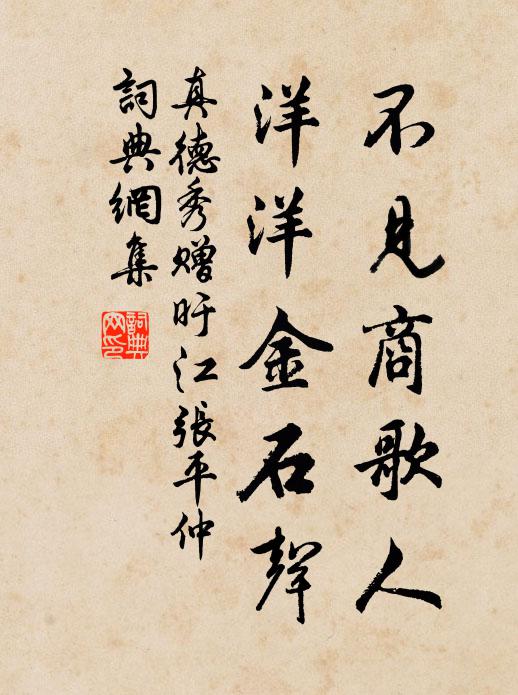 不見商歌人
洋洋金石聲
真德秀贈旴江張平仲
詞典網集
詞典網印